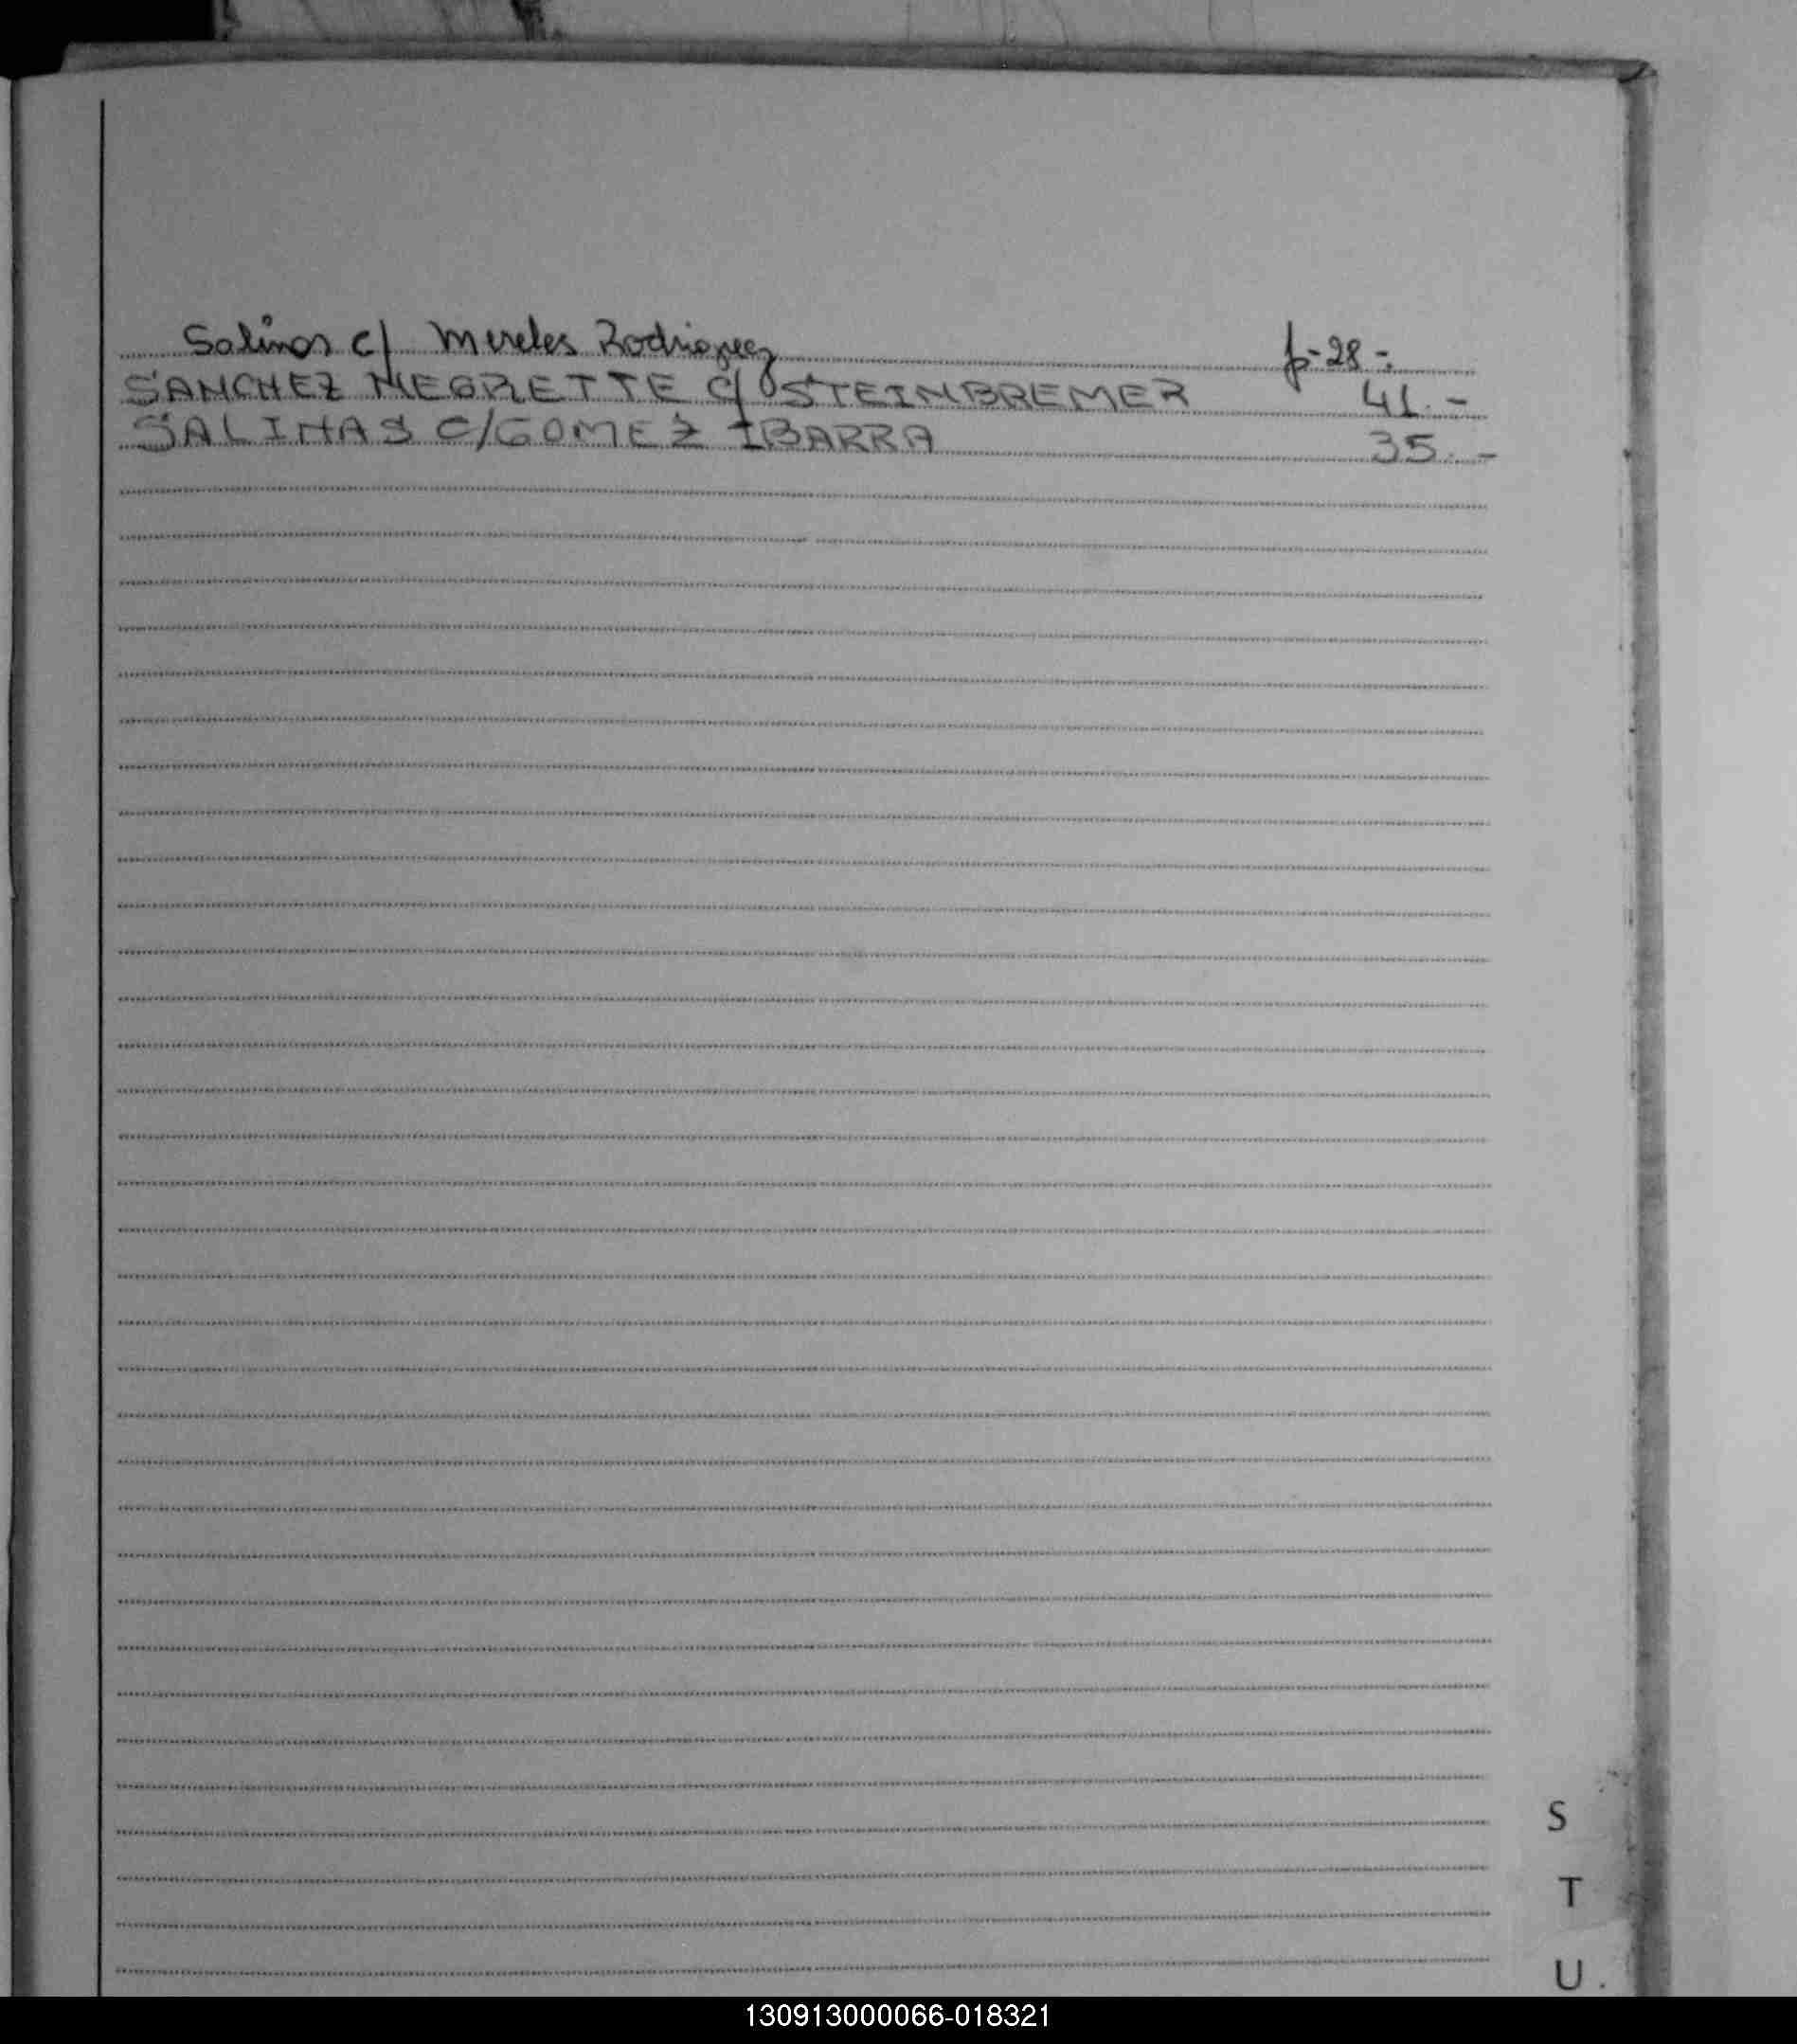 Salinas c/ Mereles Rodriguez p-28-.
SANCHEZ NEGRETTE c/ STEINBREMER 41.-
SALINAS c/GOMEZ IBARRA 35.-
S
T
U.
130913000066-018321